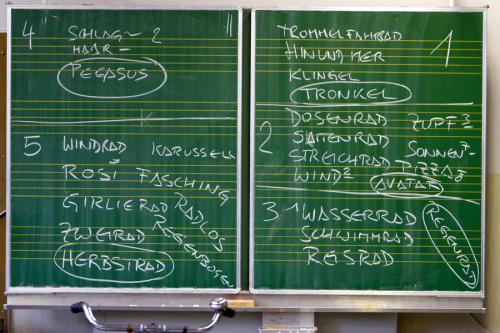 4 SCHLAG- 2
HAAR-
PEGASUS
5 WINDRAD KARUSSELL
ROSI FASCHING
GIRLIERAD RADLOS
ZWEIRAD REGENBOGEN
HERBSTRAD
TROMMELFAHRRAD 1
HIN UND HER
KLINGEL
TRONKEL
2 DOSENRAD ZUPF
SAITENRAD SONNEN-
STREICHRAD PIZZA
WIND
AVATAR
3 1 WASSERRAD REGENRAD
SCHWIMMRAD
REISRAD